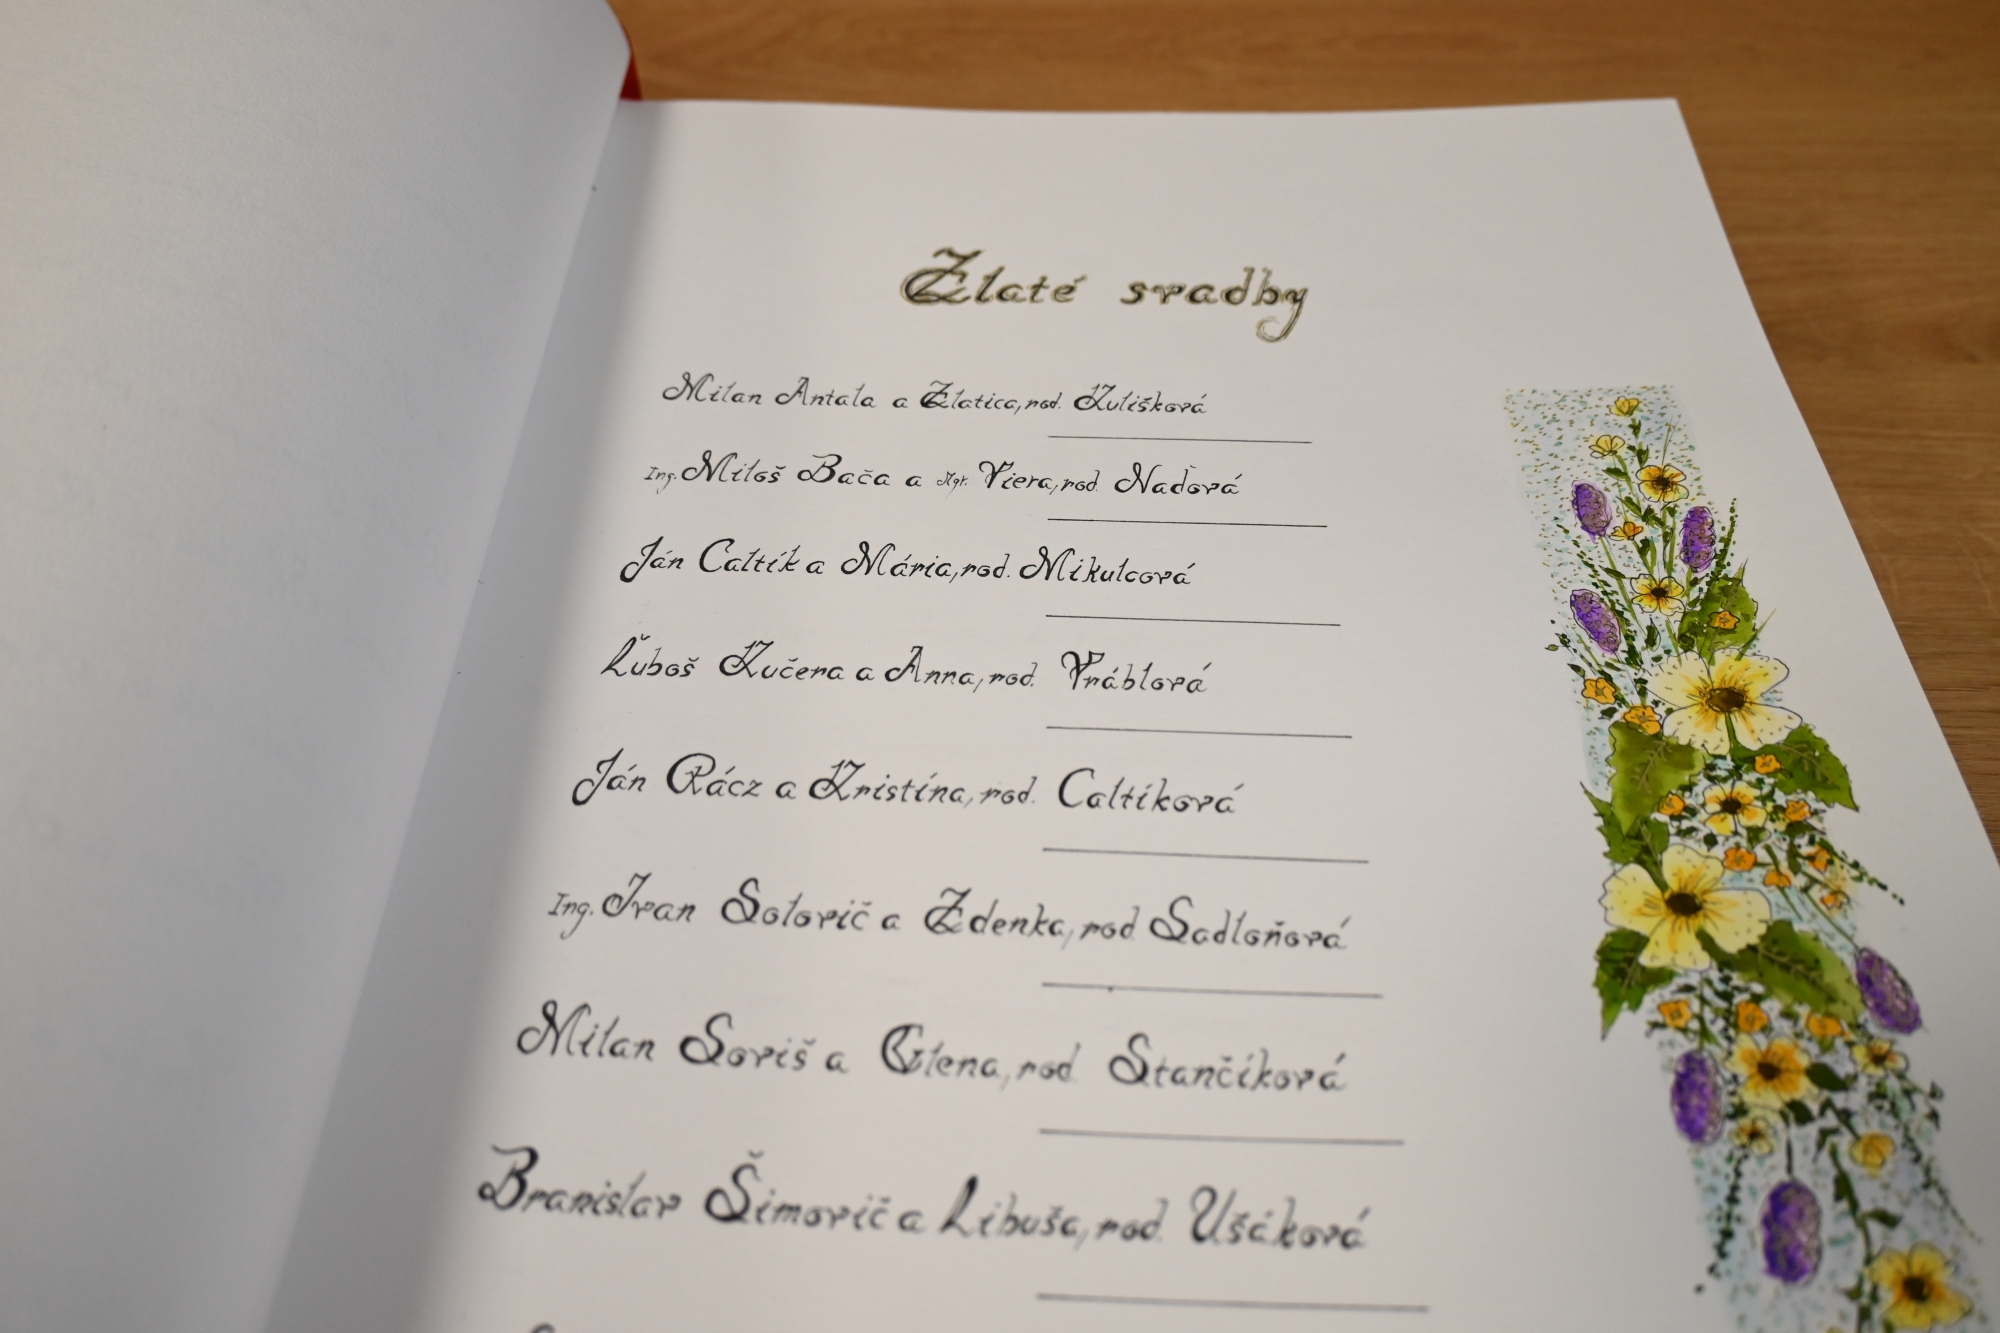 Zlaté svadby
Milan Antala a Zlatica, rod. Kulišková
Ing. Miloš Bača a Mgr. Viera, rod. Naďová
Ján Caltík a Mária, rod. Mikulcová
Ľuboš Kučera a Anna, rod. Vráblová
Ján Rácz a Kristína, rod. Caltíková
Ing. Ivan Solovič a Zdenka, rod. Sadloňová
Milan Soviš a Elena, rod. Stančíková
Branislav Šimovič a Libuša, rod. Ušáková